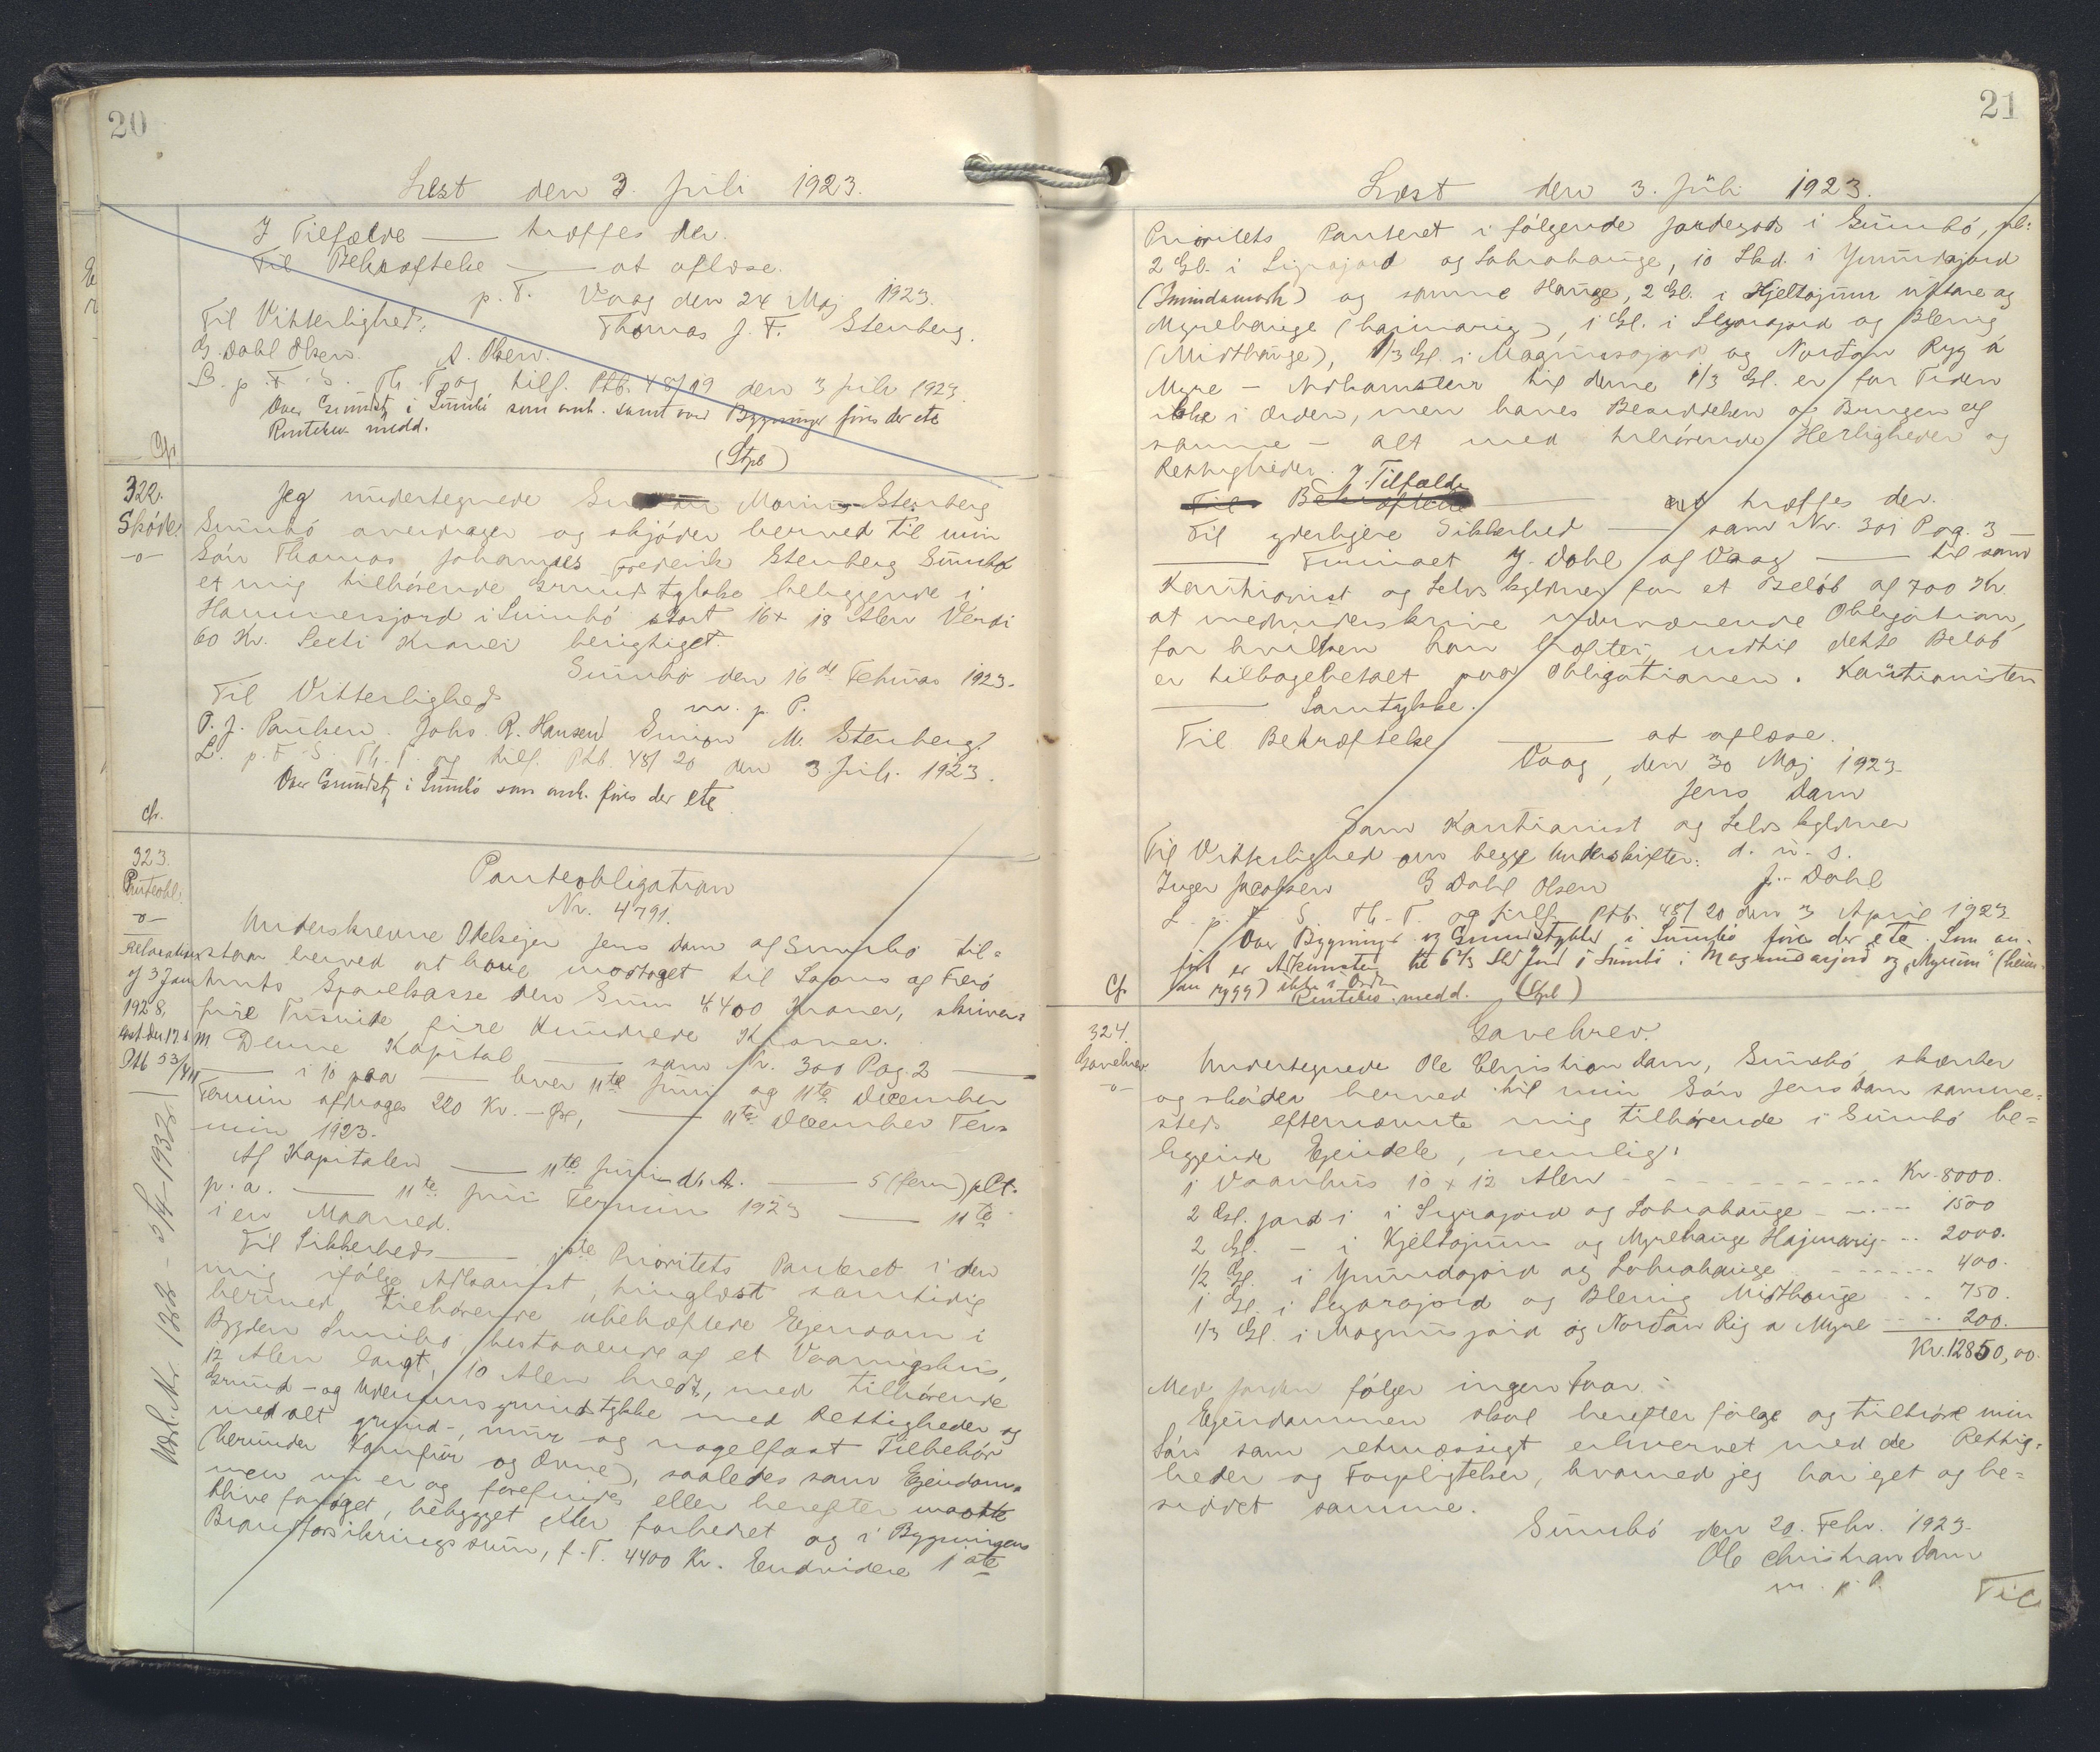 20
Læst den 3. Juli 1923.
I Tilfælde — træffes der.
Til Bekræftelse — at aflæse.
p. T. Vaag den 24 Maj 1923.
Til Vitterlighed: Thomas J. F. Stenberg.
G. Dahl Olsen. A. Olsen.
L. p. F. S. Th. T. og tilf. Ptb. 48/19 den 3 Juli 1923.
Over Grundst. i Sumbö som anh. samt over Bygningerföres der ete
Rentekr. medd.
Cfr. (Stpb)
322.
Sköde.
-o-
Jeg undertegnede Morin Stenberg
Sumbö overdrager og skjöder herved til min
Sön Thomas Johannes Frederik Stenberg Sumbö
et mig tilhörende Grundstykke beliggende i
Hammersjord i Sumbö stort 16 x 18 Alen Verdi
60 Kr. Seeti Kroner berigtiget.
Sumbö den 16de Februar 1923.
Til Vitterlighed m. p. P.
P. J. Paulsen. Johs. R. Hansen Simon M. Stenberg.
L. p. F. S. Th. T. og tilf. Ptb. 48/20 den 3 Juli 1923.
Over Grundst. i Sumbö som anh. föres der ete
Cfr.
323.
Panteobl.
-o-
Relaxation
af 3 Jan
1928,
læst den 17 s. m
Ptb 53/411
Panteobligation
Nr. 4791.
Underskrevne Odelsejer Jens Dam af Sumbö til=
staar herved at have modtaget til Laans af Færö
Amts Sparekasse den Sum 4400 Kroner, skriver
fire Tusinde fire Hundrede Kroner.
Denne Kapital — som Nr. 300 Pag. 2 —
— i 10 paa — hver 11te Juni og 11te December
Termin afdrages 220 Kr. - Øre, — 11te December Ter=
min 1923.
Af Kapitalen — 11te Juni d. A. — 5 (fem) pCt.
p. a. — 11te Juni Termin 1923 — 11te
i en Maaned.
Til Sikkerhed — 1ste Prioritets Panteret i den
mig ifölge Adkomst, tinglæst samtidig
hermed tilhörende ubehæftede Ejendom i
Bygden Sumbö, bestaaende af et Vaaningshus,
12 Alen langt, 10 Alen bredt, med tilhörende
Grund- og Udenomsgrundstykke med Rettigheder og
med alt grund-, mur og nagelfast Tilbehör
(herunder Komfur og Ovne), saaledes som Ejendom=
men nu er og forefindes eller herefter maatte
blive foröget, bebygget eller forbedret og i Bygningens
Brandforsikringssum, f. T. 4400 Kr. Endvidere 1ste
21
Læst den 3. Juli 1923.
Prioritets Panteret i fölgende Jordegods i Sumbö, nl:
2 Gl. i Signajord og Lobrahauge, 10 Skd. i Ynundajord
og samme Hauge, 2 Gl. i Hjeltojnum og
Myrehauge, 1 Gl. i Segarajord og Blenig
(Midthauge), 1/3 Gl. i Magnusajord og Nordan Ryg á
Myre — Adkomsten til denne 1/3 Gl. er for Tiden
ikke i Orden, men haves Besiddelsen og Brugen af
samme — alt med tilhörende Herligheder og
Rettigheder.
I Tilfælde
Til Bekræftelse — træffes der.
Til yderligere Sikkerhed — som Nr. 301 Pag. 3 —
— J. Dahl af Vaag — til som
Kautionist og Selvskyldner for et Belöb af 700 Kr.
at medunderskrive nærværende Obligation,
for hvilken han hæfter indtil dette Belöb
er tilbagebetalt paa Obligationen. Kautionisten
— Samtykke.
Til Bekræftelse — at aflæse.
Vaag, den 30 Maj 1923.
Jens Dam
Som Kautionist og Selvskyldner
Til Vitterlighed om begge Underskrifter: d. u. s.
Inger Jacobsen G Dahl Olsen J. Dahl
L. p. F. S. Th. T. og tilf. Ptb. 48/20 den 3 April 1923
Over Bygninger og Grundstykke i Sumbö föres der ete. Som an-
fört er Adkomsten til 6 2/3 Skd Jord i Sumbö i Magnusarjord og "Myrum"
ikke i Orden
Cfr. Rentekr. medd. (Stpb)
324.
Gavebrev
-o-
Gavebrev.
Undertegnede Ole Christian Dam, Sumbö, skænker
og sköder herved til min Sön Jens Dam samme=
steds efternævnte mig tilhörende i Sumbö be=
liggende Ejendele, nemlig:
1 Vaanhus 10 x 12 Alen - - - Kr. 8000.
2 Gl. jord i i Signajord og Lobrahauge - - - 1500
2 Gl. - i Kjeltojnum og Myrehauge Hajmarig - - 2000.
1/2 Gl. i Ynundajord og Lobrahauge - - - 400.
1 Gl. i Segarajord og Blenig Midthauge - - - 750.
1/3 Gl. i Magnusjord og Nordan Rig a Myre - - - 200.
Kr. 12850,00.
Med Jorden fölger ingen Faar.
Ejendommen skal herefter fölge og tilhöre min
Sön som retmæssigt erhvervet med de Rettig=
heder og Forpligtelser, hvormed jeg har ejet og be=
siddet samme.
Sumbö den 20. Febr. 1923.
Ole Christian Dam
m. p. P.
Til